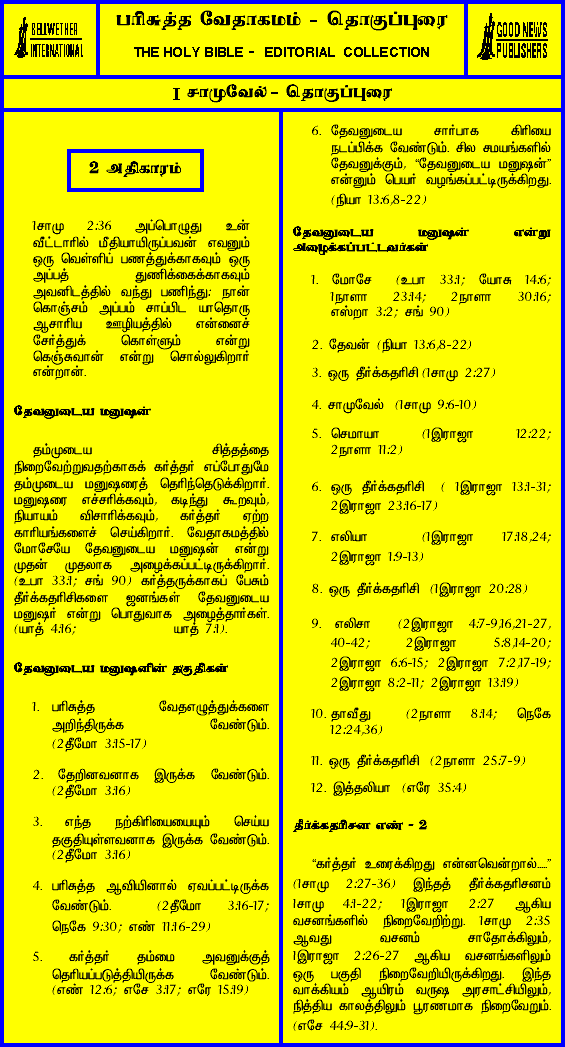 BELLWETHER
INTERNATIONAL
பரிசுத்த வேதாகமம் - தொகுப்புரை
THE HOLY BIBLE - EDITORIAL COLLECTION
GOOD NEWS
PUBLISHERS
I சாமுவேல்- தொகுப்புரை
2 அதிகாரம்
1சாமு 2:36 அப்பொழுது உன்
வீட்டாரில் மீதியாயிருப்பவன் எவனும்
ஒரு வெள்ளிப் பணத்துக்காகவும் ஒரு
அப்பத் துணிக்கைக்காகவும்
அவனிடத்தில் வந்து பணிந்து: நான்
கொஞ்சம் அப்பம் சாப்பிட யாதொரு
ஆசாரிய ஊழியத்தில் என்னைச்
சேர்த்துக் கொள்ளும் என்று
கெஞ்சுவான் என்று சொல்லுகிறார்
என்றான்.
தேவனுடைய மனுஷன்
தம்முடைய சித்தத்தை
நிறைவேற்றுவதற்காகக் கர்த்தர் எப்போதுமே
தம்முடைய மனுஷரைத் தெரிந்தெடுக்கிறார்.
மனுஷரை எச்சரிக்கவும், கடிந்து கூறவும்,
நியாயம் விசாரிக்கவும், கர்த்தர் ஏற்ற
காரியங்களைச் செய்கிறார். வேதாகமத்தில்
மோசேயே தேவனுடைய மனுஷன் என்று
முதன் முதலாக அழைக்கப்பட்டிருக்கிறார்.
(உபா 33:1; சங் 90) கர்த்தருக்காகப் பேசும்
தீர்க்கதரிசிகளை ஜனங்கள் தேவனுடைய
மனுஷர் என்று பொதுவாக அழைத்தார்கள்.
(யாத் 4:16; யாத் 7:1).
தேவனுடைய மனுஷனின் தகுதிகள்
1. பரிசுத்த வேதஎழுத்துக்களை
அறிந்திருக்க வேண்டும்.
(2தீமோ 3:15-17)
2. தேறினவனாக இருக்க வேண்டும்.
(2தீமோ 3:16)
3. எந்த நற்கிரியையையும் செய்ய
தகுதியுள்ளவனாக இருக்க வேண்டும்.
(2தீமோ 3:16)
4. பரிசுத்த ஆவியினால் ஏவப்பட்டிருக்க
வேண்டும். (2தீமோ 3:16-17;
நெகே 9:30; எண் 11:16-29)
5. கர்த்தர் தம்மை அவனுக்குத்
தெரியப்படுத்தியிருக்க வேண்டும்.
(எண் 12:6; எசே 3:17; எரே 15:19)
6. தேவனுடைய சார்பாக கிரியை
நடப்பிக்க வேண்டும். சில சமயங்களில்
தேவனுக்கும், “தேவனுடைய மனுஷன்”
என்னும் பெயர் வழங்கப்பட்டிருக்கிறது.
(நியா 13:6,8-22)
தேவனுடைய மனுஷன் என்று
அழைக்கப்பட்டவர்கள்
1. மோசே (உபா 33:1; யோசு 14:6;
1நாளா 23:14; 2நாளா 30:16;
எஸ்றா 3:2; சங் 90)
2. தேவன் (நியா 13:6,8-22)
3. ஒரு தீர்க்கதரிசி (1சாமு 2:27)
4. சாமுவேல் (1சாமு 9:6-10)
5. செமாயா (1இராஜா 12:22;
2நாளா 11:2)
6. ஒரு தீர்க்கதரிசி ( 1இராஜா 13:1-31;
2இராஜா 23:16-17)
7. எலியா (1இராஜா 17:18,24;
2இராஜா 1:9-13)
8. ஒரு தீர்க்கதரிசி (1இராஜா 20:28)
9. எலிசா (2இராஜா 4:7-9,16,21-27,
40-42; 2இராஜா 5:8,14-20;
2இராஜா 6:6-15; 2இராஜா 7:2,17-19;
2இராஜா 8:2-11; 2இராஜா 13:19)
10. தாவீது (2நாளா 8:14; நெகே
12:24,36)
11. ஒரு தீர்க்கதரிசி (2நாளா 25:7-9)
12. இத்தலியா (எரே 35:4)
தீர்க்கதரிசன எண் - 2
“கர்த்தர் உரைக்கிறது என்னவென்றால்.....”
(1சாமு 2:27-36) இந்தத் தீர்க்கதரிசனம்
1சாமு 4:1-22; 1இராஜா 2:27 ஆகிய
வசனங்களில் நிறைவேறிற்று. 1சாமு 2:35
ஆவது வசனம் சாதோக்கிலும்,
1இராஜா 2:26-27 ஆகிய வசனங்களிலும்
ஒரு பகுதி நிறைவேறியிருக்கிறது. இந்த
வாக்கியம் ஆயிரம் வருஷ அரசாட்சியிலும்,
நித்திய காலத்திலும் பூரணமாக நிறைவேறும்.
(எசே 44:9-31).